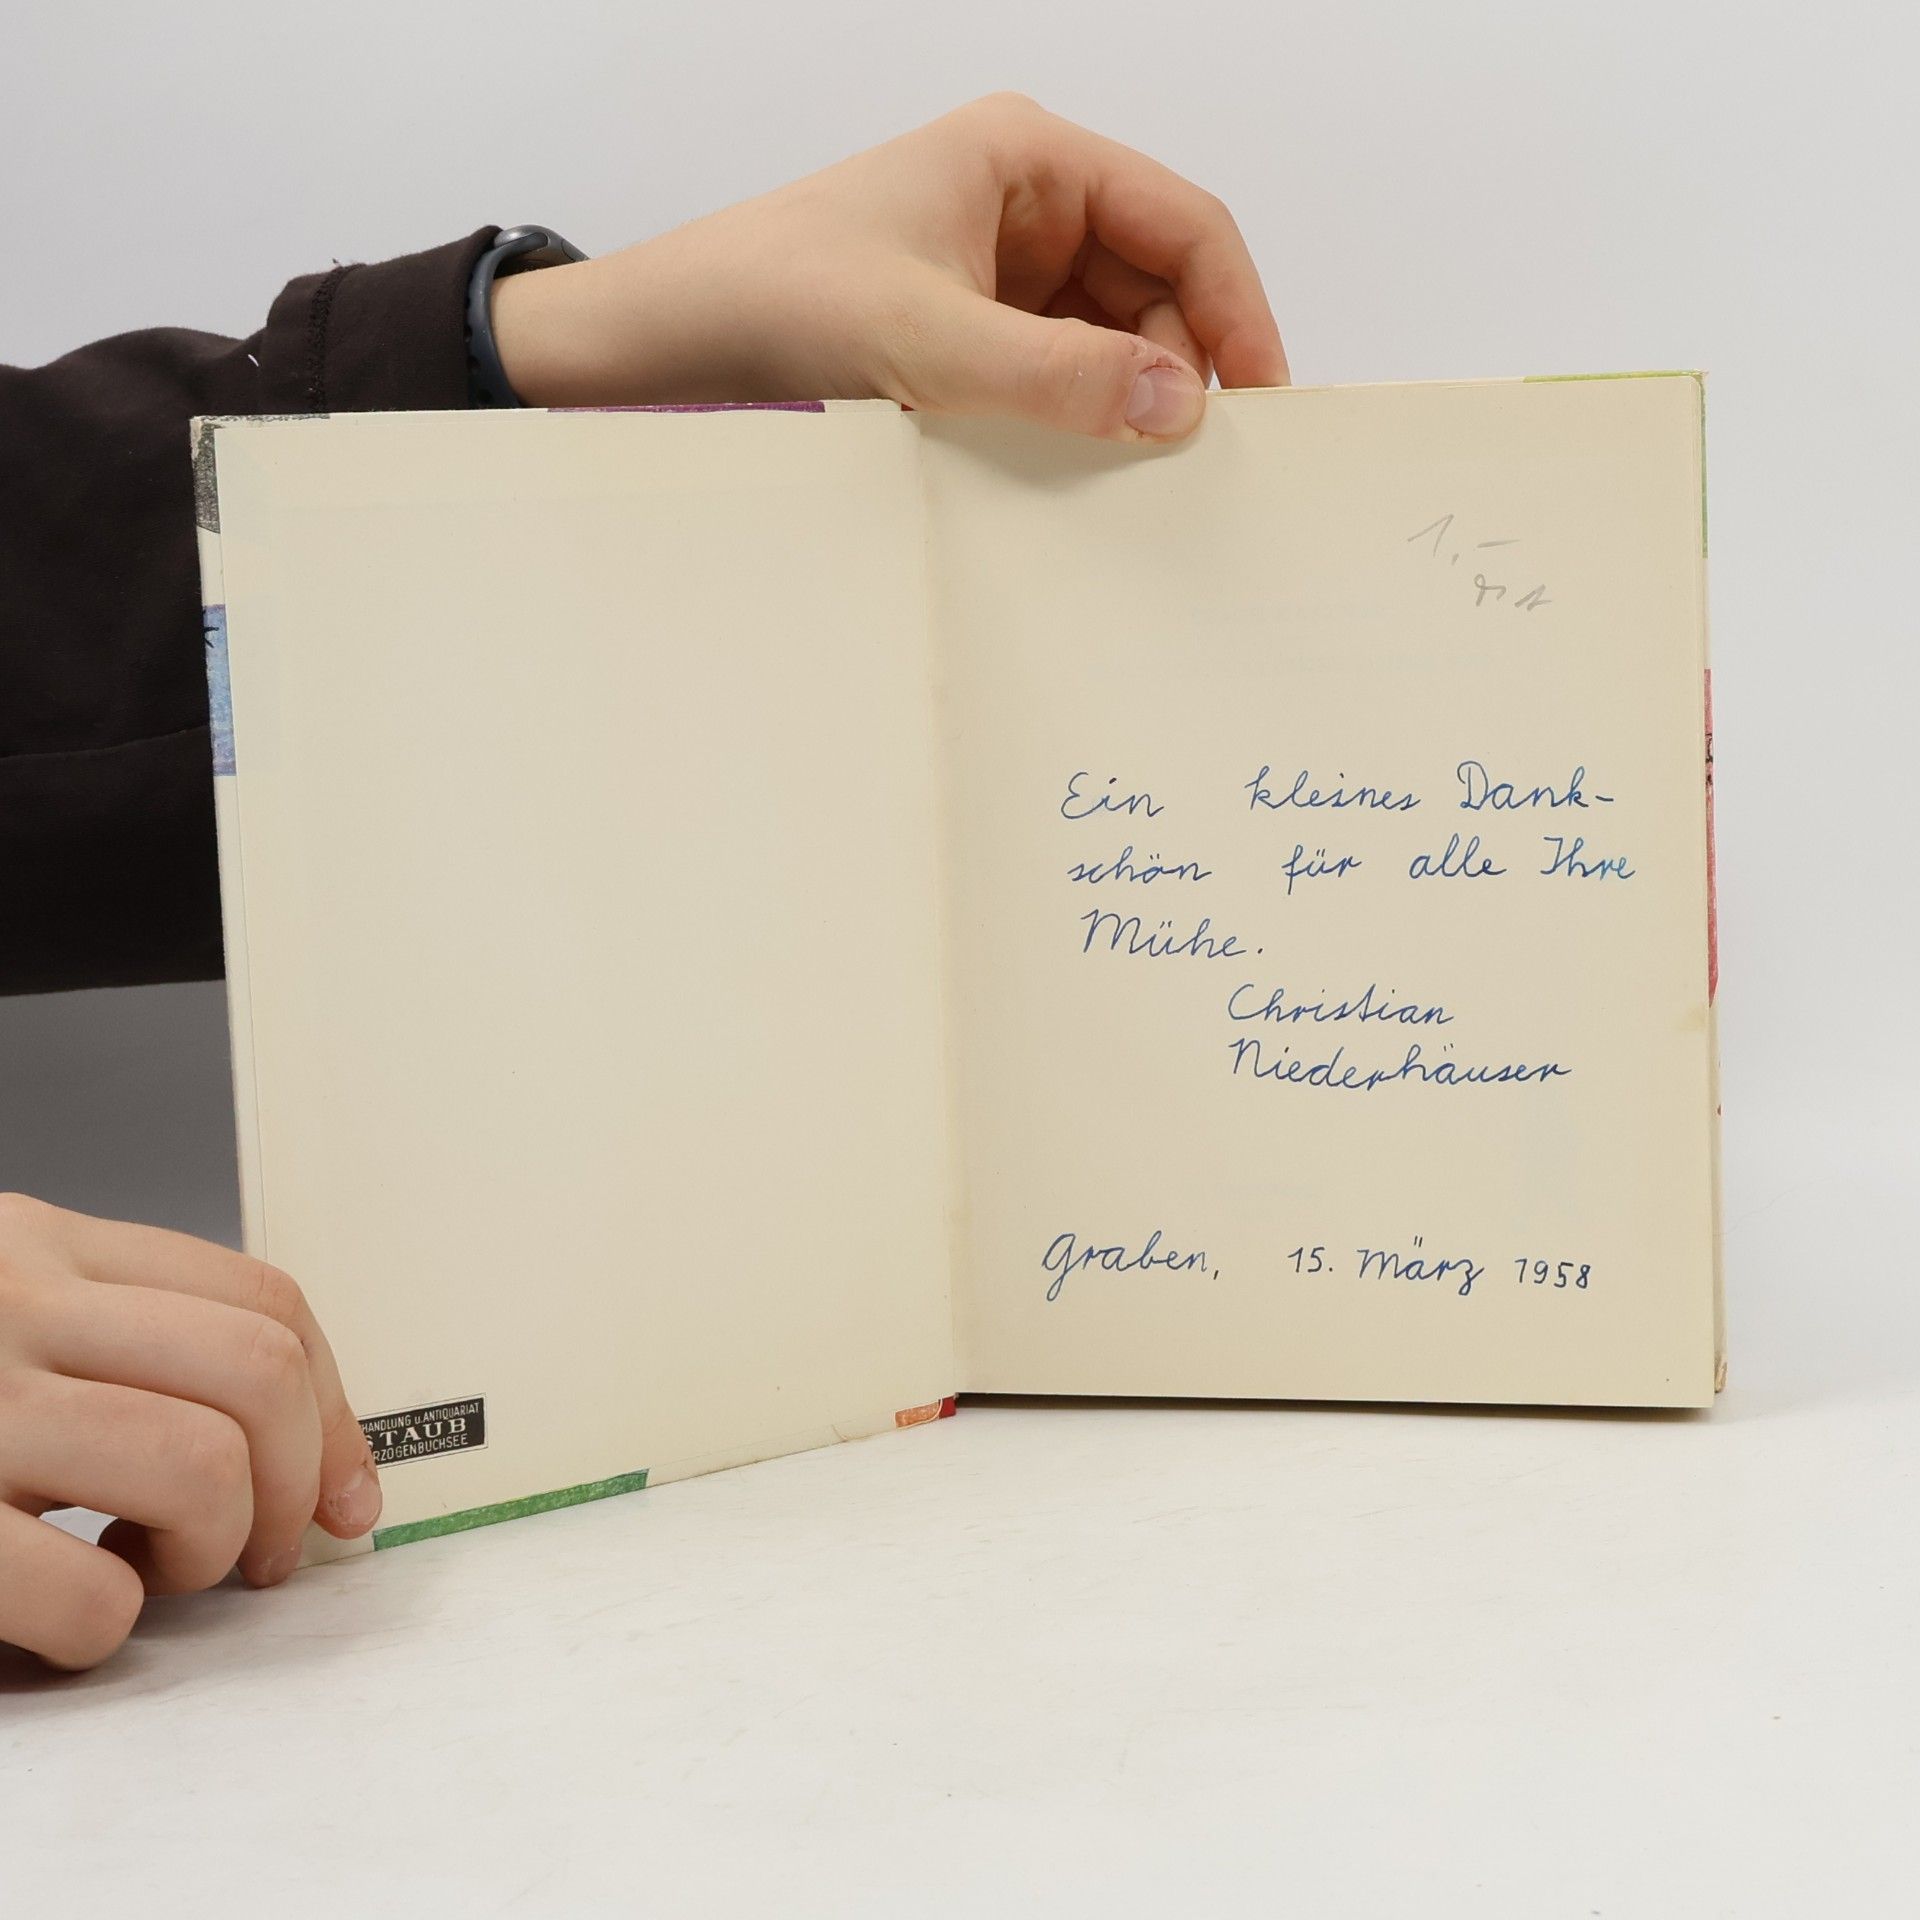 HANDLUNG u. ANTIQUARIAT
STAUB
RZOGENBUCHSEE
1.–
Ein kleines Dank-
schön für alle Ihre
Mühe.
Christian
Niederhäuser
Graben, 15. März 1958